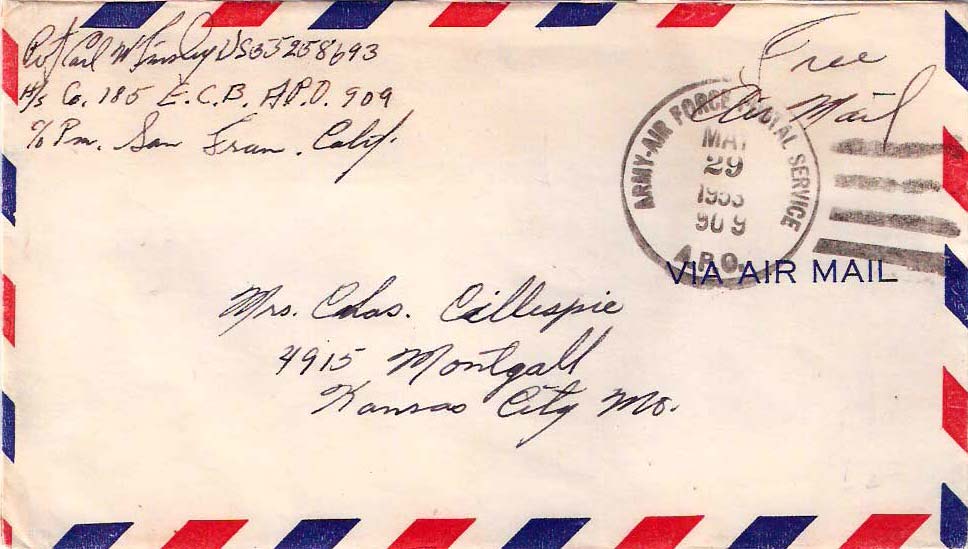 Pvt Carl W Tinsley US55258693
H/s Co. 185 E.C.B. A.P.O. 909
c/o Pm. San Fran. Calif.
Free
Air Mail
ARMY-AIR FORCE POSTAL SERVICE
MAY
29
1953
909
A.P.O.
VIA AIR MAIL
Mrs. Chas. Gillespie
4915 Montgall
Kansas City Mo.